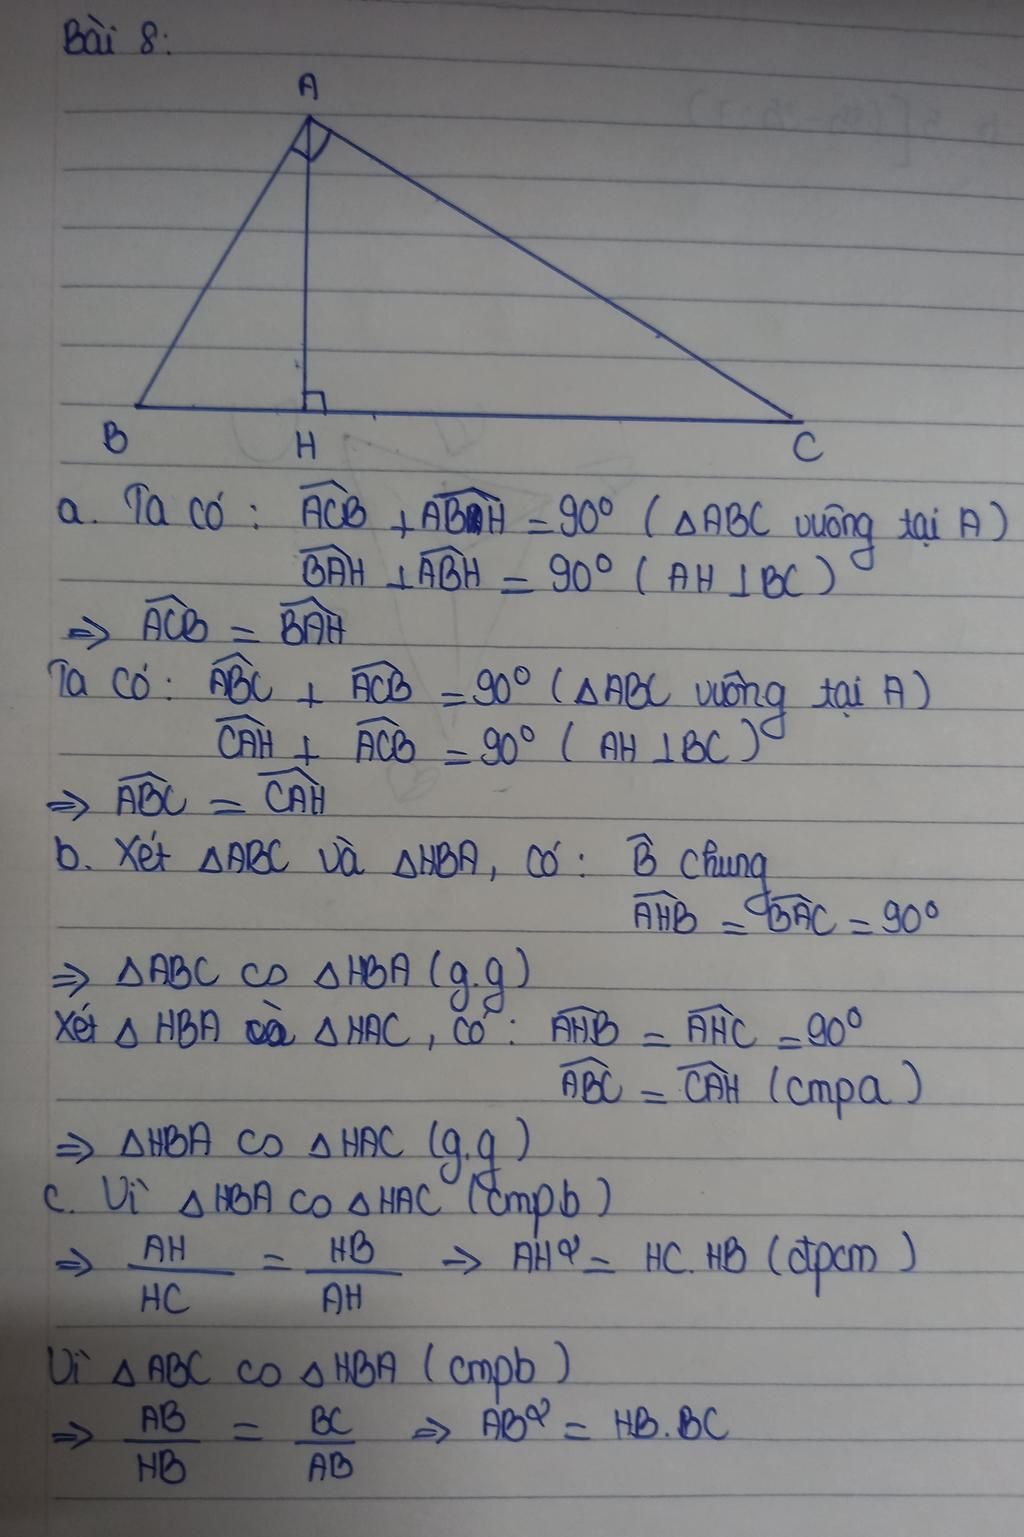 Bài 8:
A
B H C
a. Ta có: \widehat{ACB} + \widehat{ABH} = 90° (△ABC vuông tại A)
\widehat{BAH} + \widehat{ABH} = 90° (AH ⊥ BC)
⇒ \widehat{ACB} = \widehat{BAH}
Ta có: \widehat{ABC} + \widehat{ACB} = 90° (△ABC vuông tại A)
\widehat{CAH} + \widehat{ACB} = 90° (AH ⊥ BC)
⇒ \widehat{ABC} = \widehat{CAH}
b. Xét △ABC và △HBA, có: \widehat{B} chung
\widehat{AHB} = \widehat{BAC} = 90°
⇒ △ABC ∽ △HBA (g.g)
Xét △HBA và △HAC, có: \widehat{AHB} = \widehat{AHC} = 90°
\widehat{ABC} = \widehat{CAH} (cmpa)
⇒ △HBA ∽ △HAC (g.g)
c. Vì △HBA ∽ △HAC (cmpb)
⇒ \frac{AH}{HC} = \frac{HB}{AH} ⇒ AH² = HC.HB (đpcm)
Vì △ABC ∽ △HBA (cmpb)
⇒ \frac{AB}{HB} = \frac{BC}{AB} ⇒ AB² = HB.BC